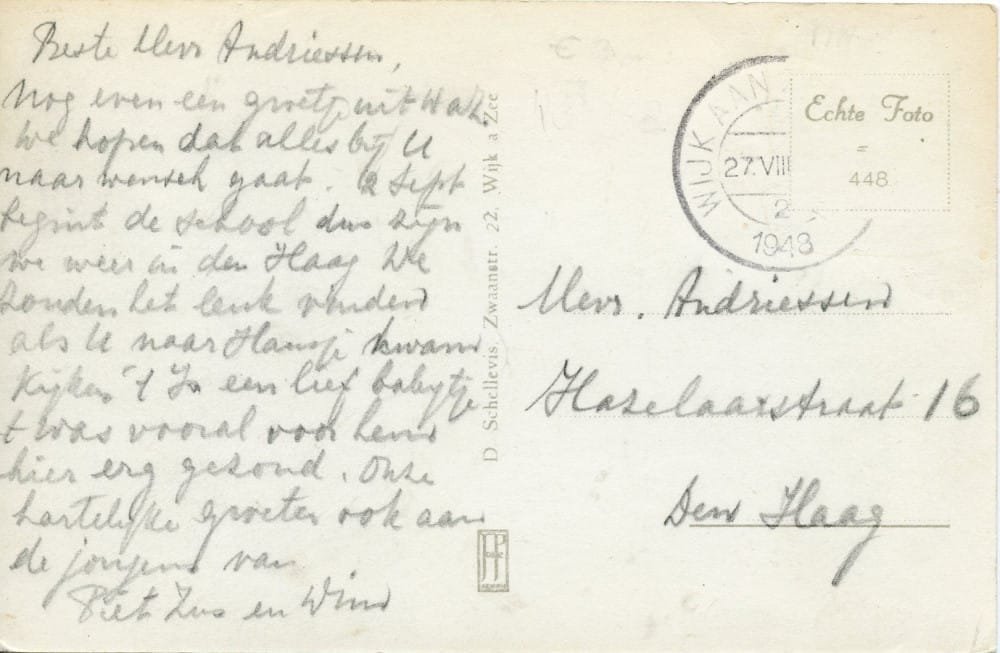 Beste Mevr Andriessen,
Nog even een groetje uit W aZ.
We hopen dat alles bij U
naar wensch gaat. 2 Sept
begint de school dus zijn
we weer in den Haag We
zouden het leuk vinden
als U naar Hansje kwam
Kijken 't Is een lief babytje
't was vooral voor hem
hier erg gezond. Onze
hartelijke groeten ook aan
de jongens van
Piet Zus en Wim
D Schellevis, Zwaanstr. 22, Wijk a Zee
WIJK AAN
27.VIII
2
1948
Echte Foto
=
448
Mevr. Andriessen
Hazelaarstraat 16
Den Haag
JP